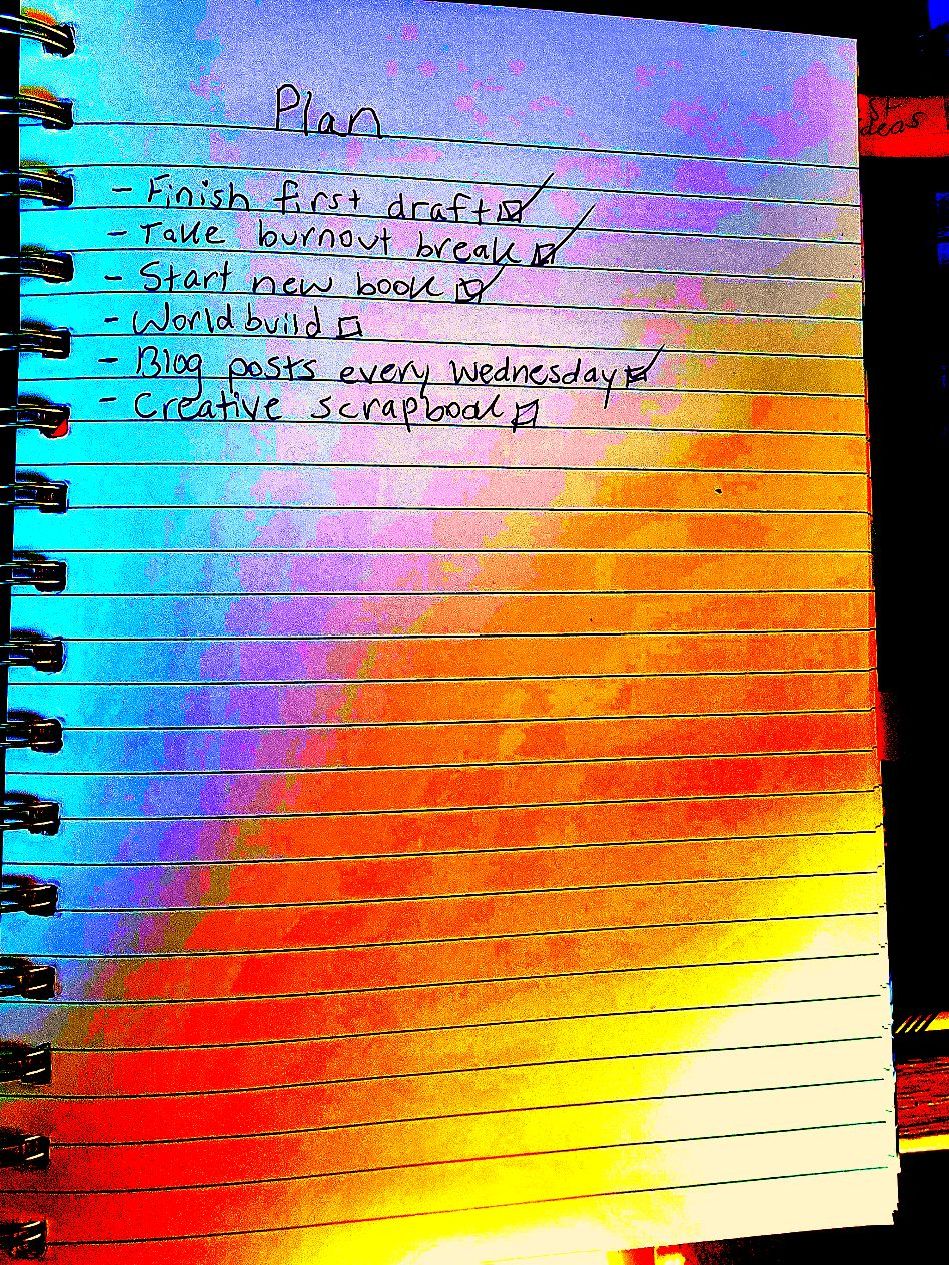 Plan
- Finish first draft ☑
- Take burnout break ☑
- Start new book ☑
- Worldbuild ☐
- Blog posts every wednesday ☑
- Creative scrapbook ☐
ideas